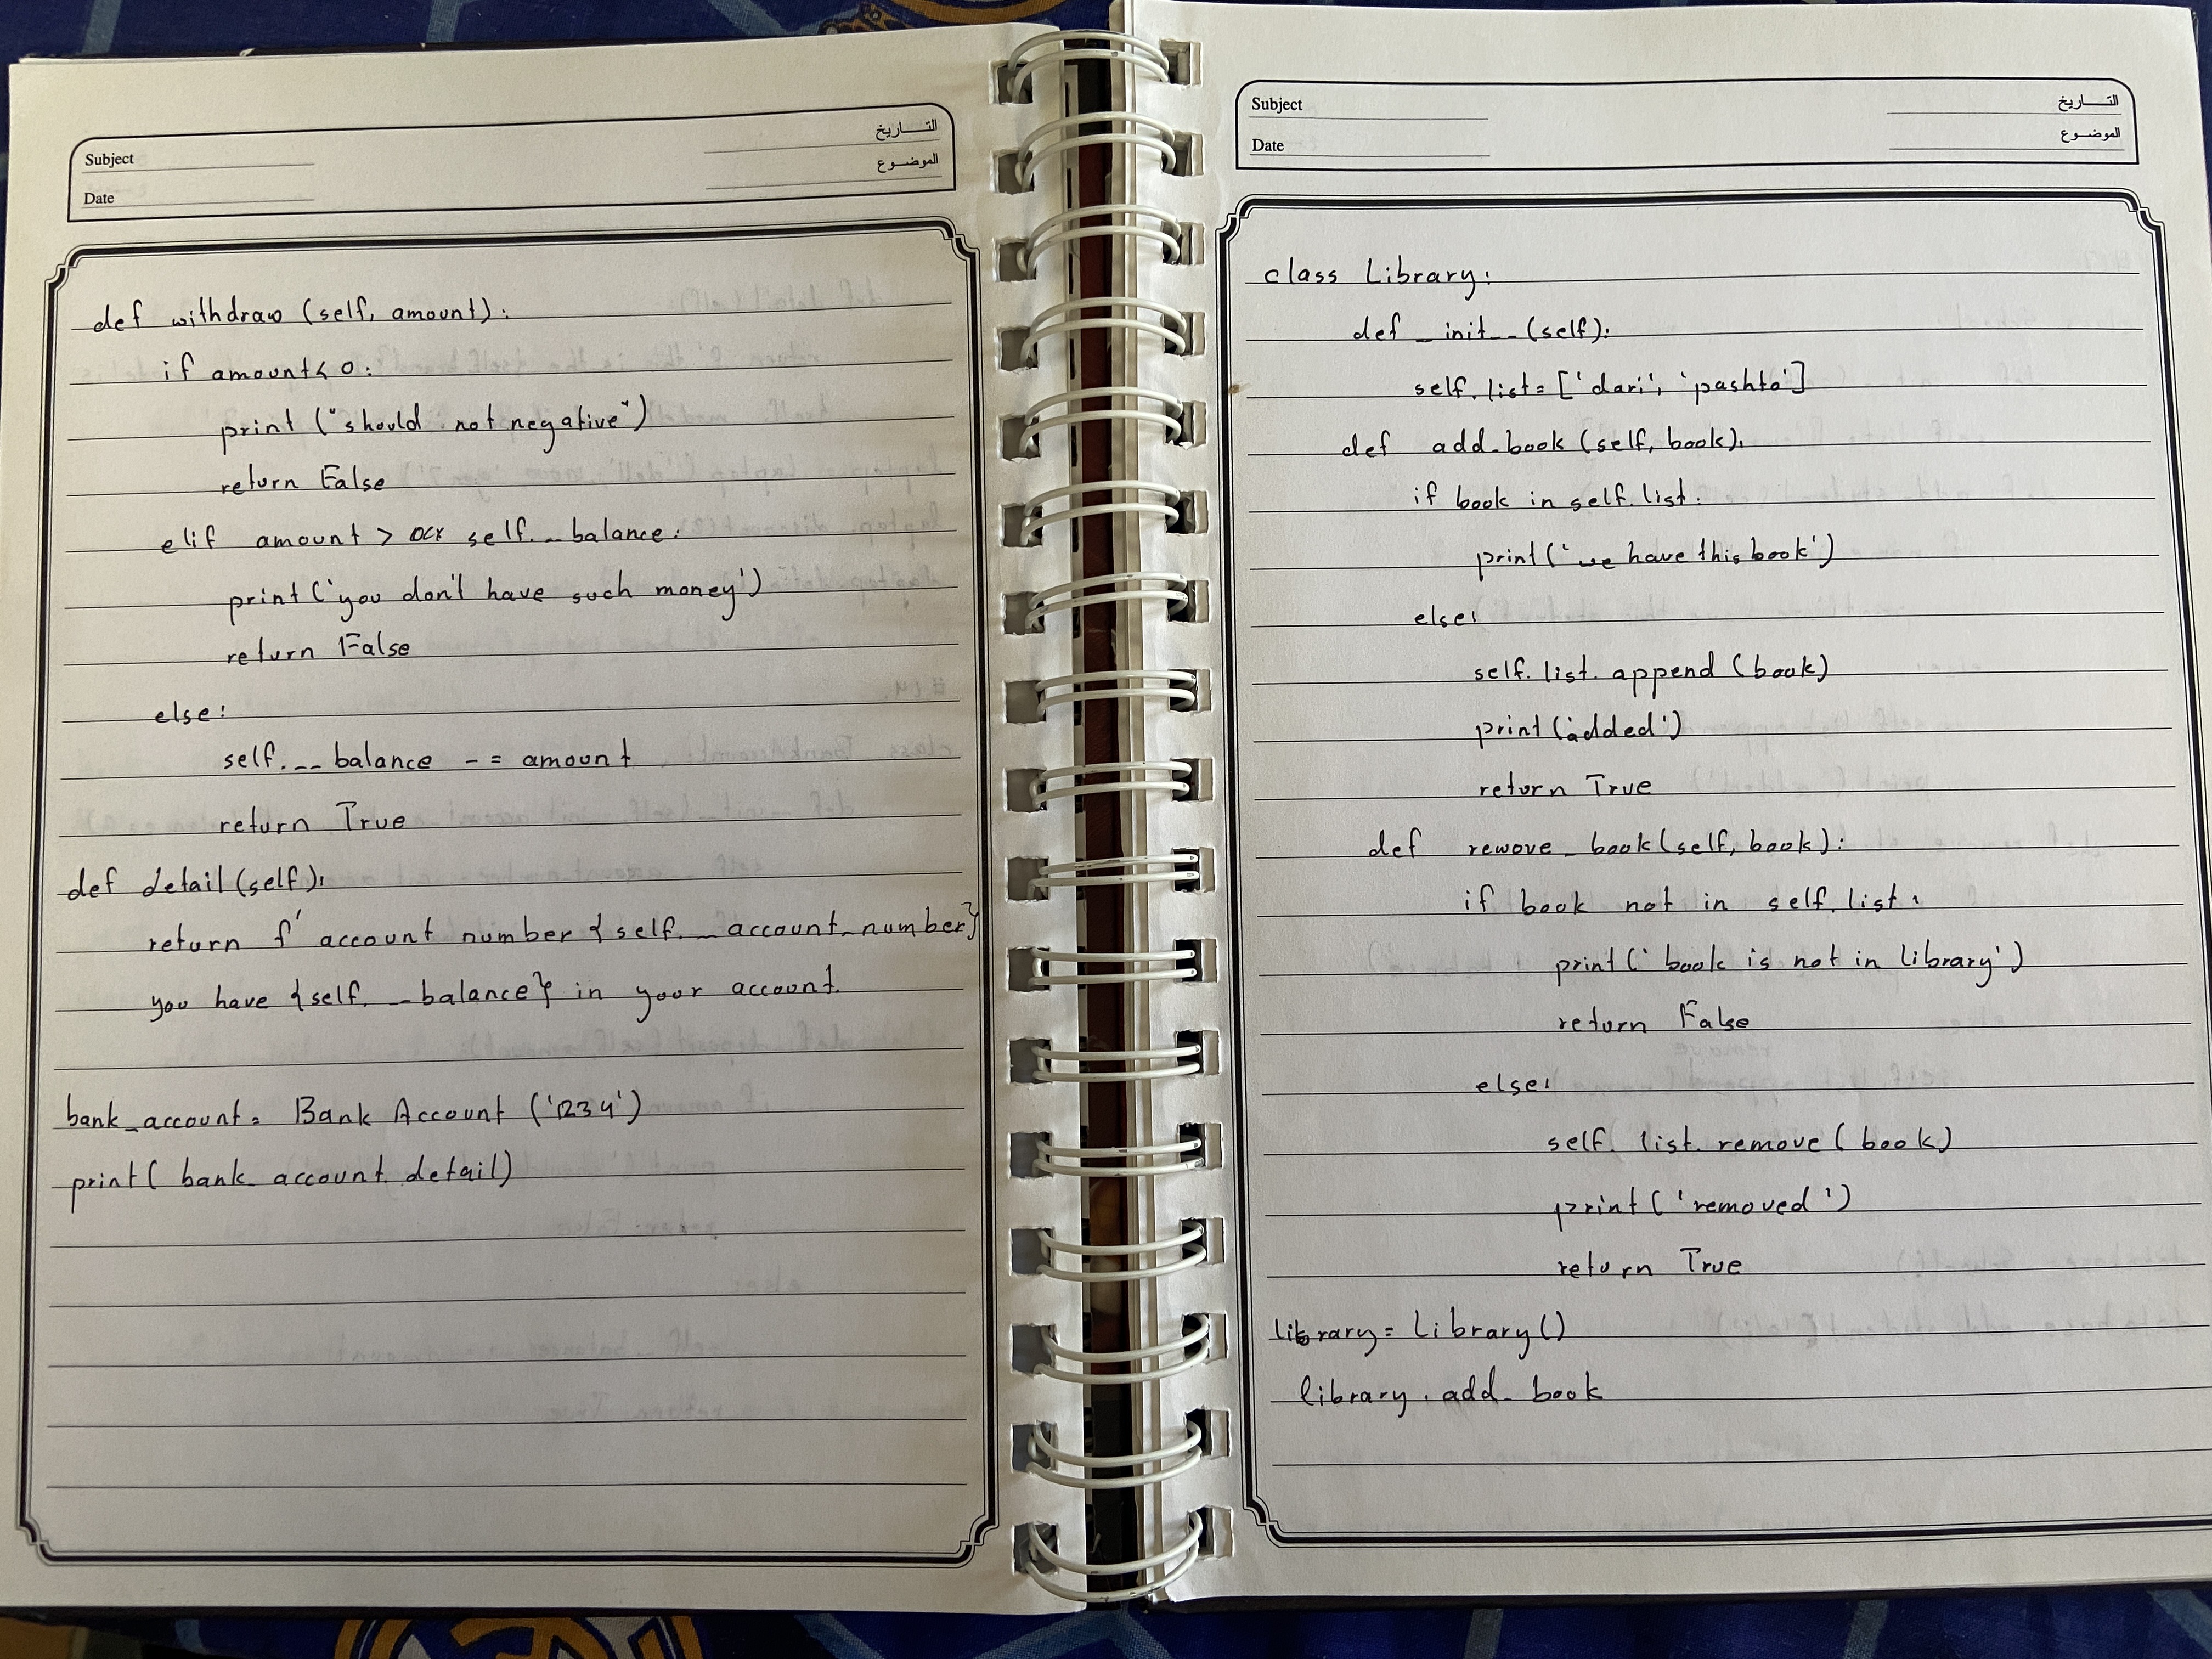 Subject التـــاريخ
Date الموضـــوع
def withdraw (self, amount):
if amount < 0:
print ("should not negative")
return False
elif amount > self.__balance:
print ('you don't have such money')
return False
else:
self.__balance -= amount
return True
def detail (self):
return f' account number {self.__account_number}
you have {self.__balance} in your account
bank_account = Bank Account ('1234')
print( bank_account.detail)
Subject التـــاريخ
Date الموضـــوع
class Library:
def _init__(self):
self.list = ['dari', 'pashto']
def add_book (self, book):
if book in self.list:
print(' we have this book')
else:
self.list.append (book)
print('added')
return True
def remove_book (self, book):
if book not in self.list:
print(' book is not in library')
return False
else:
self.list.remove (book)
print ('removed')
return True
library = Library()
library.add_book